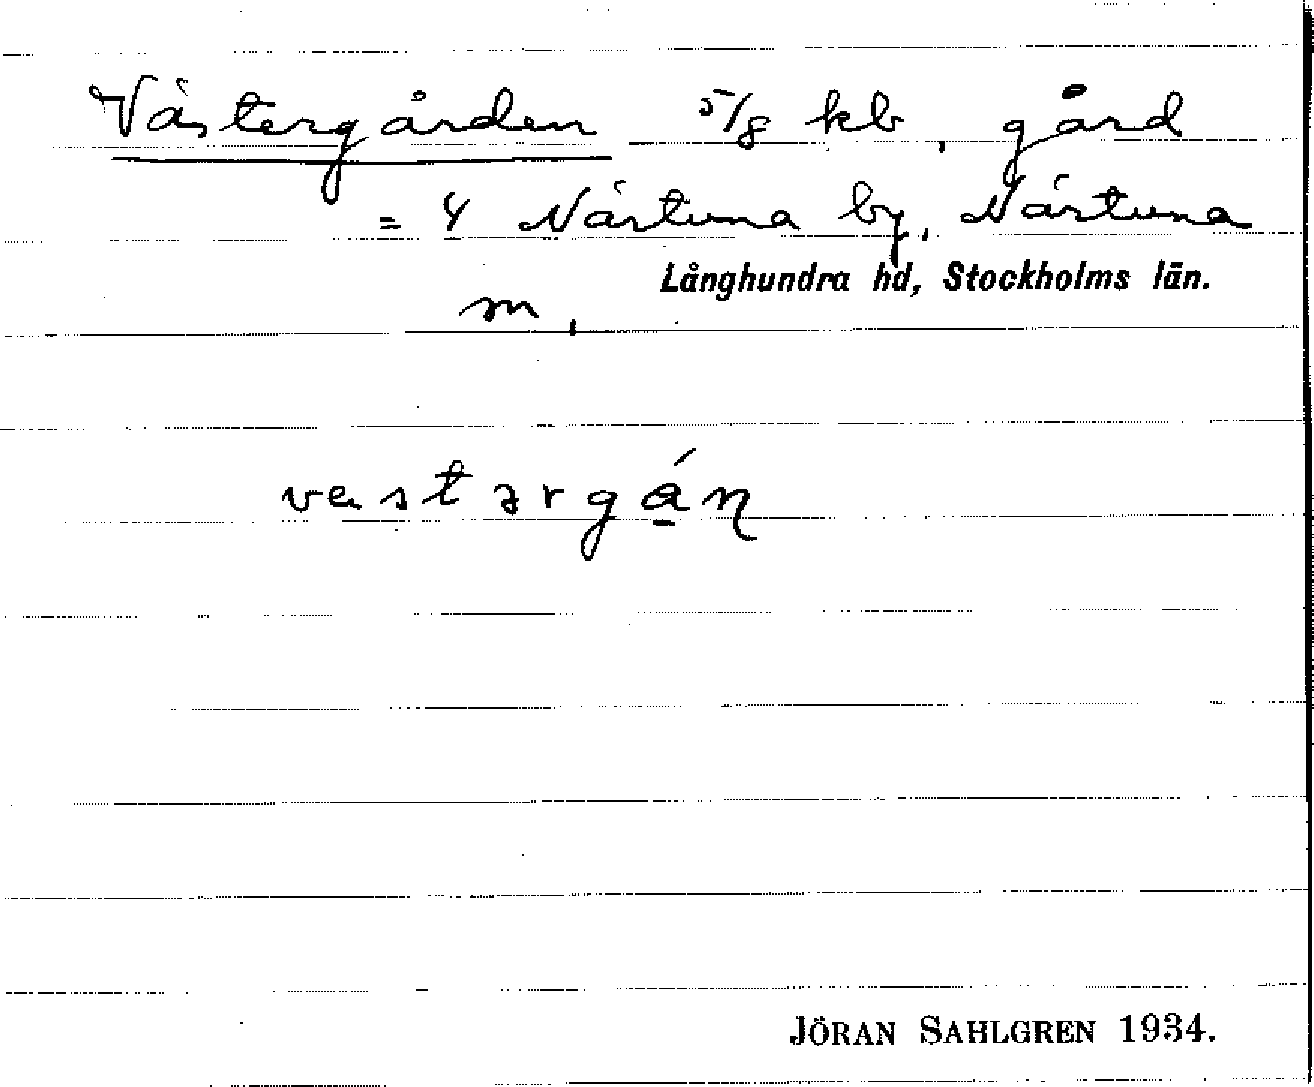 Västergården 5/8 kb, gård
= 4 Närtuna by, Närtuna
Långhundra hd, Stockholms län.
m,
vestərgán
JÖRAN SAHLGREN 1934.